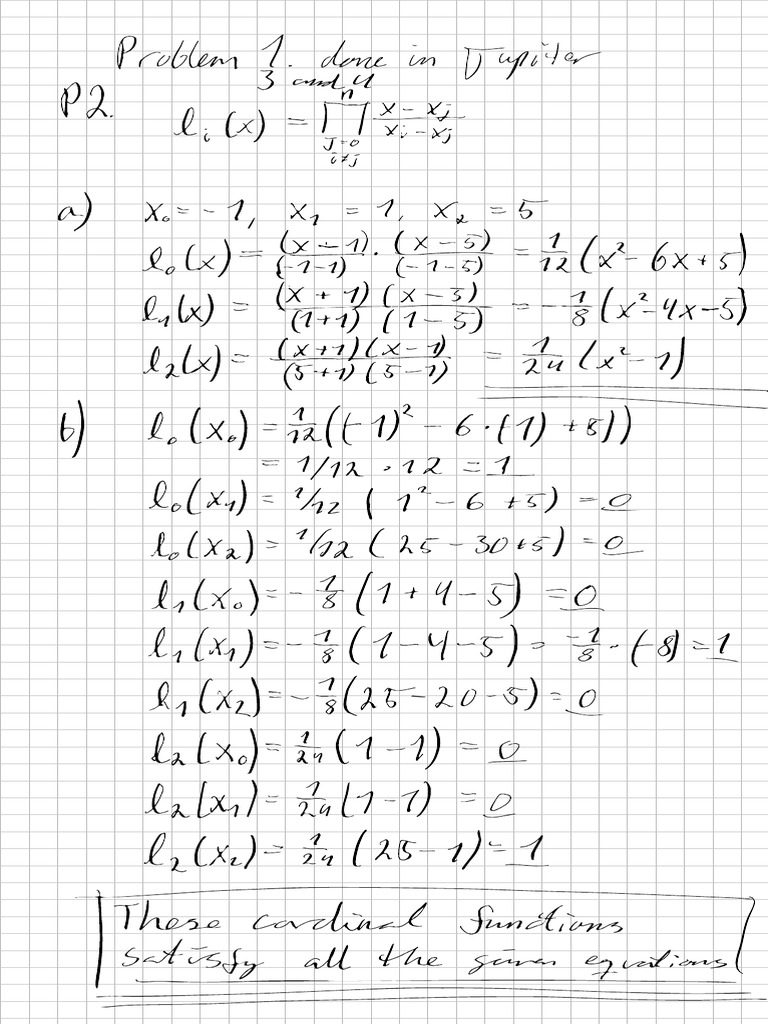 Problem 1. done in Jupiter
3 and 4
P2. l_i(x) = ∏_{j=0, i≠j}^{n} (x - x_j)/(x_i - x_j)
a) x_0 = -1, x_1 = 1, x_2 = 5
l_0(x) = (x - 1)/(-1-1) · (x - 5)/(-1-5) = 1/12 (x² - 6x + 5)
l_1(x) = (x + 1)(x - 5)/(1+1)(1-5) = -1/8 (x² - 4x - 5)
l_2(x) = (x+1)(x-1)/(5+1)(5-1) = 1/24 (x² - 1)
b) l_0(x_0) = 1/12((-1)² - 6·(-1) + 5))
= 1/12 · 12 = 1
l_0(x_1) = 1/12 (1² - 6 + 5) = 0
l_0(x_2) = 1/12 (25 - 30 + 5) = 0
l_1(x_0) = -1/8 (1 + 4 - 5) = 0
l_1(x_1) = -1/8 (1 - 4 - 5) = -1/8 · (-8) = 1
l_1(x_2) = -1/8 (25 - 20 - 5) = 0
l_2(x_0) = 1/24 (1 - 1) = 0
l_2(x_1) = 1/24 (1 - 1) = 0
l_2(x_2) = 1/24 (25 - 1) = 1
These cardinal functions
satisfy all the given equations